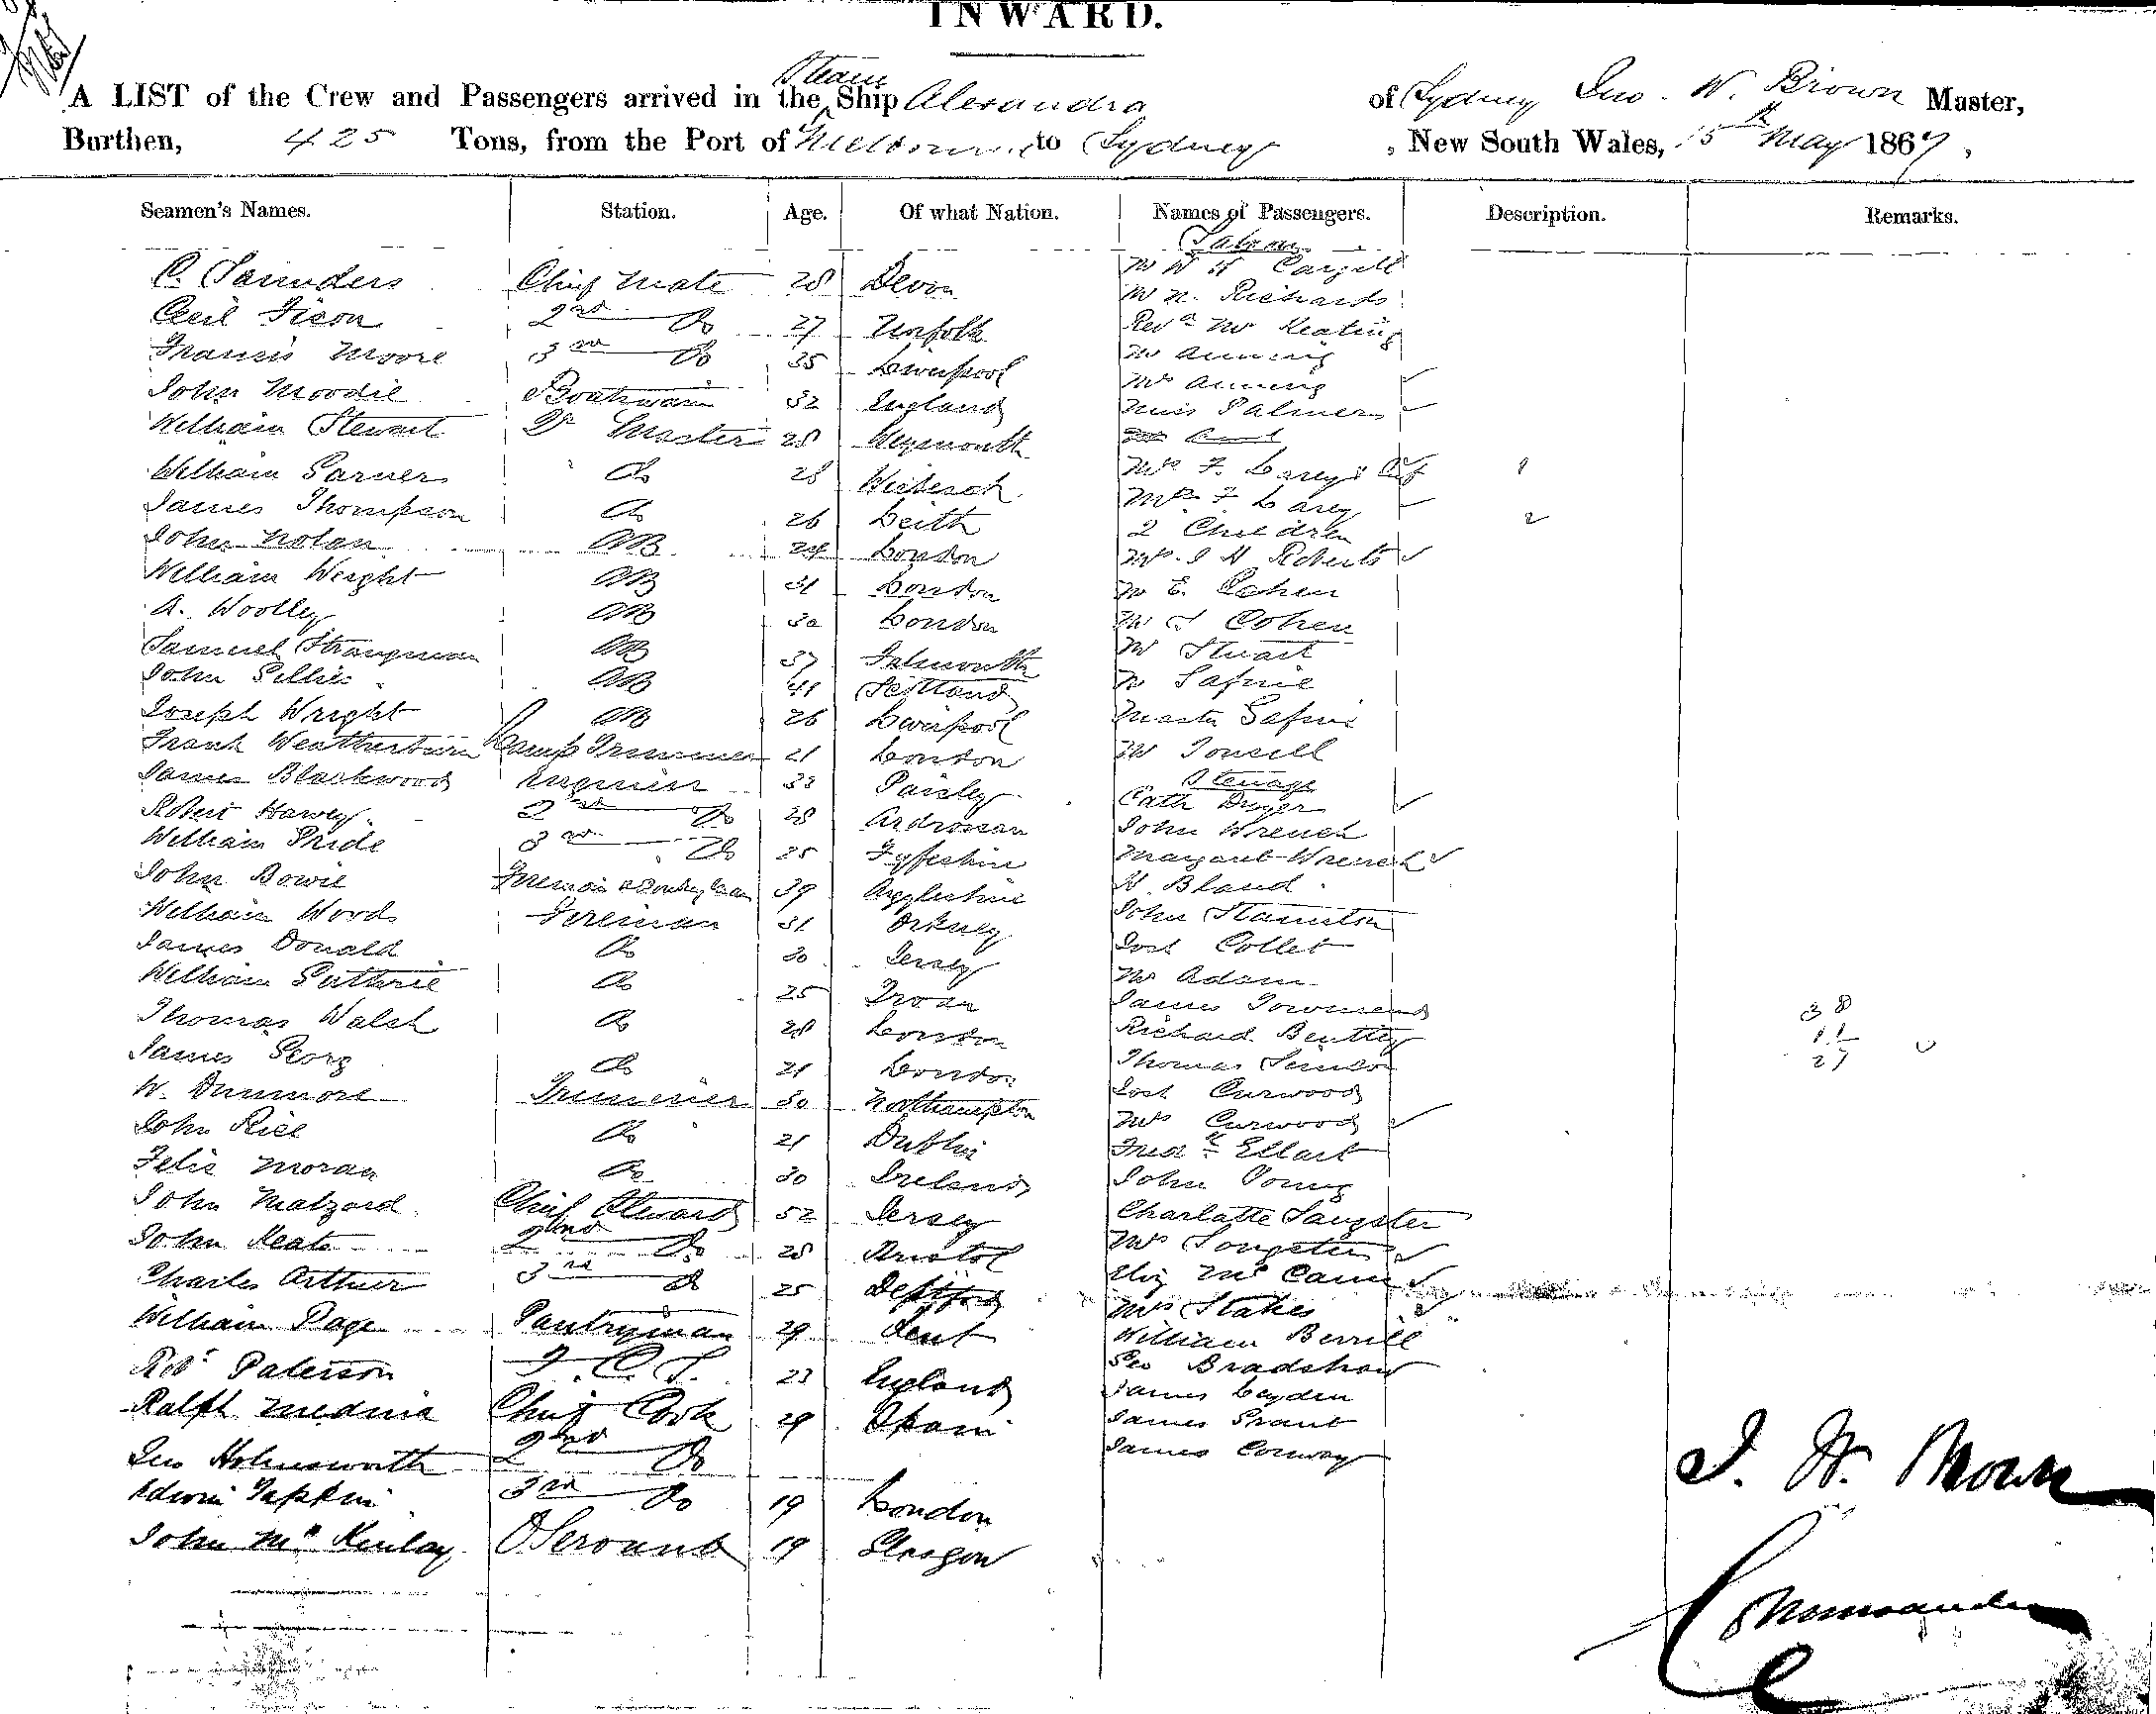 INWARD.
A LIST of the Crew and Passengers arrived in the Steam Ship Alexandra of Sydney Jno. W. Brown Master,
Burthen, 425 Tons, from the Port of Melbourne to Sydney, New South Wales, 15th May 1867,
Seamen's Names. Station. Age. Of what Nation. Names of Passengers. Description. Remarks.
Saloon
C. Saunders Chief Mate 28 Devon Mr W H Cargill
Mr N. Richards
Cecil 2nd Do 27 Norfolk Revd Mr Keating
Francis Moore 3rd Do 35 Liverpool Mr Anning
John Moodie Boatswain 32 England Mrs Anning
Miss Palmer
William Stewart Qr Master 28 Weymouth
William Garner Do 28 Wisbeach Mr F. Larey & 1
James Thompson Do 26 Leith Mrs F Larey 2
2 Children
John Nolan AB 24 London Mrs J H Roberts
William Wright AB 31 London Mr E. Cohen
A. Woolley AB 30 London Mr J Cohen
Samuel Strangman AB 37 Falmouth Mr Stuart
John Gillies AB 41 Scotland Mr
Joseph Wright AB 26 Liverpool Master
Frank Weatherburn Lamp Trimmer 21 London Mr Towsell
Steerage
James Blackwood Engineer 33 Paisley Cath Dwyer
Robert Harvey 2nd Do 28 Ardrossan John Wrench
William Pride 3rd Do 25 Fyfeshire Margaret Wrench
John Bowie Fireman & Donkeyman 39 Argyleshire W. Bland
William Woods Fireman 31 Orkney John
James Donald Do 30 Jersey Josh Collet
William Guthrie Do 25 Troon Mr Adam
James Townsend 38
Thomas Walsh Do 28 London Richard Bentley 11
James Georg Do 21 London Thomas 27
W. Dunmore Trimmer 30 Northampton Josh Curwood
John Rice Do 21 Dublin Mrs Curwood
Felix Moran Do 30 Ireland Fredk Ellart
John Young
John Malzard Chief Steward 52 Jersey Charlatte Sangster
John Keats 2nd Do 28 Bristol Mrs Songster
Charles Arthur 3rd Do 25 Deptford Eliz McCann
William Page Pantryman 29 Kent Mrs Stakes
William Berrill
Robt Paterson F.C.S. 23 England Geo Bradshaw
Ralph Medina Chief Cook 29 Spain James Leyden
James Grant
Jno Holmsworth 2nd Do James Conway
Edwin Tapkin 3rd Do 19 London
John McKinlay O Servant 19 Glasgow
J. W. Brown
Commander